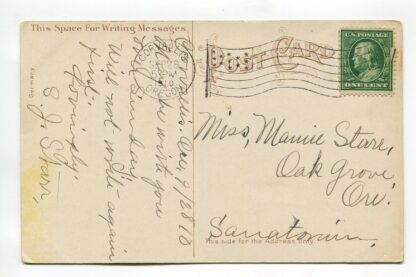 This Space For Writing Messages
Corvallis. Oct, 9/28/10
be with you
Sunday
Will not write again
first.
Lovingly.
E. J. Starr,
Germany
POST CARD
U.S. POSTAGE
ONE CENT
Miss, Mamie Starr,
Oak Grove
Ore.
Sanatorium,
This side for the Address only.